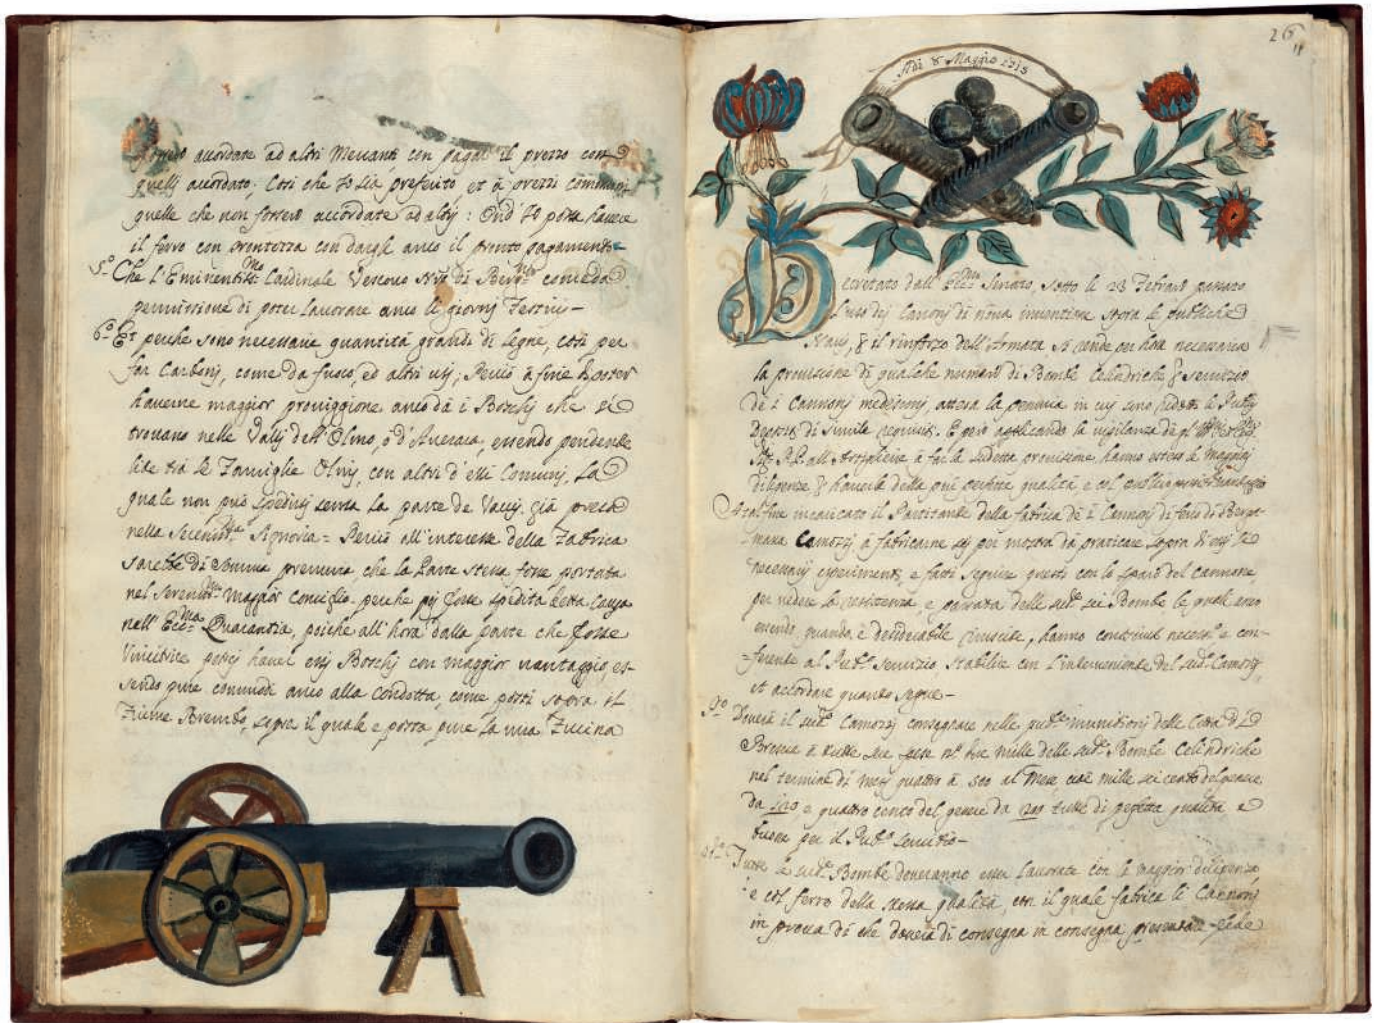 accordate ad altri Mercanti con pagar il prezzo con
quelli accordato; Così che Io sia preferito, et à prezzi communi
quelle che non fossero accordate ad altri: Ond' Io possa havere
il ferro con prontezza con dargli anco il pronto pagamento
5.º Che l'Eminentiss.mo Cardinale Vescovo di conceda
permissione di poter lavorare anco li giorni Festivi-
6.º Et perche sono necessarie quantità grandi di legne, così per
far Carboni, come da fuoco, ed altri usi; Perciò à fine di poter
haverne maggior proviggione anco dà i Boschi che si
trovano nelle Valli dell'Olmo, ò d'Averara, essendo pendente
lite trà le Famiglie Olmi, con altri d'essi Comuni, La
quale non può spedirsi senza La parte de già presa
nella Sereniss.ma Signoria = Perciò all'interesse della Fabrica
sarebbe di somma premura, che la Parte stessa fosse portata
nel Sereniss.mo Maggior Conseglio, perche poi fosse spedita detta Causa
nell'Ecc.ma Quarantia, poiche all'hora dalla parte che fosse
Vincitrice possi haver essi Boschi con maggior vantaggio, es-
sendo pure commodi anco alla Condotta, come posti sopra il
Fiume Brembo, sopra il quale è posta pure la mia Fucina
26
Adi 8 Maggio 1715
Decretato dall'Ecc.mo Senato, sotto li 23 Febraro passato
l'uso dei Cannoni di nova inventione sopra le publiche
Navi, il rinforzo dell'Armata, si rende per hora necessaria
la provisione di qualche numero di Bombe Celindriche servizio
dè i Cannoni medesimi, attesa la penuria in cui sono ridotti li Publ.
Depositi di simile requisito. E però applicando la vigilanza de gl'
all'Artiglieria à far la sudetta provisione, hanno estese le maggiori
diligenze haverle della più perfetta qualità, e col
A tal fine incaricato il Partitante della fabrica dè i Cannoni di ferro di Berga-
masca Camozzi à fabricarne sei per mostra da praticare sopra d'essi le
necessarij esperimenti, e fatti seguire questi con lo sparo del Cannone,
per vedere la resistenza, e portata delle sud.e sei Bombe le quali anco
essendo, quando, è desiderabile riuscite, hanno conosciuto necess.o e con-
=ferente al Pub.o servizio, stabilire con l'interveniente del sud.o Camozzi,
et accordare quanto segue-
P.º Doverà il sud.o Camozzi consegnare nelle pub.e munitioni della Città di
Brescia à tutte sue spese n.º due mille delle sud.e Bombe Celindriche
nel termine di mesi quattro à 500 al Mese, cioè mille sei cento del genere
da 120 e quattro cento del genere da 200 tutte di perfetta qualità e
buone per il Pub.o servitio-
2.º Tutte le sud.e Bombe doveranno esser lavorate con la maggior diligenza
e col ferro della stessa qualità, con il quale fabrica li Cannoni
in prova di che doverà di consegna in consegna presentare fede